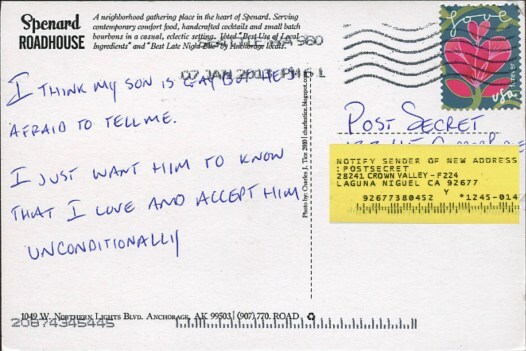 Spenard
ROADHOUSE
A neighborhood gathering place in the heart of Spenard. Serving
contemporary comfort food, handcrafted cocktails and small batch
bourbons in a casual, eclectic setting. Voted "Best Use of Local
Ingredients" and "Best Late Night Bite" by Anchorage locals.
980
07 JAN 2013 PM 6 L
Love
USA
I THINK MY SON IS GAY BUT HE'S
AFRAID TO TELL ME.
I JUST WANT HIM TO KNOW
THAT I LOVE AND ACCEPT HIM
UNCONDITIONALLY
Photo by: Charles J. Tice 2010
POST SECRET
NOTIFY SENDER OF NEW ADDRESS
:POSTSECRET
28241 CROWN VALLEY-F224
LAGUNA NIGUEL CA 92677
Y
92677380452 *1245-014
1049 W. NORTHERN LIGHTS BLVD. ANCHORAGE, AK 99503 | (907) 770. ROAD
20874345445